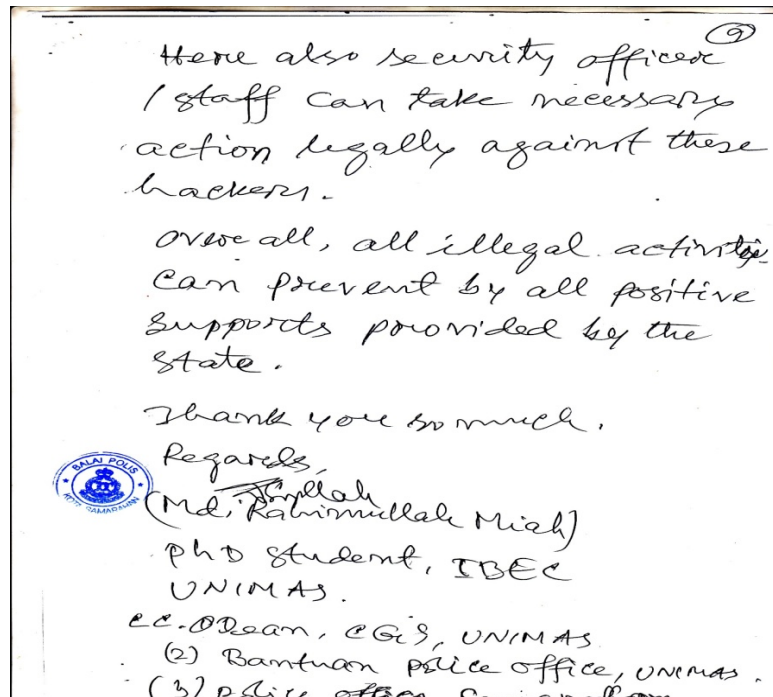 9
Here also security officer
/ staff can take necessary
action legally against these
hackers.
Overall, all illegal activities
can prevent by all positive
supports provided by the
state.
Thank you so much.
Regards,
(Md. Rahimullah Miah)
PhD student, IBEC
UNIMAS.
BALAI POLIS
KOTA SAMARAHAN
cc. (1) Dean, CGS, UNIMAS
(2) Bantuan police office, UNIMAS.
(3) police